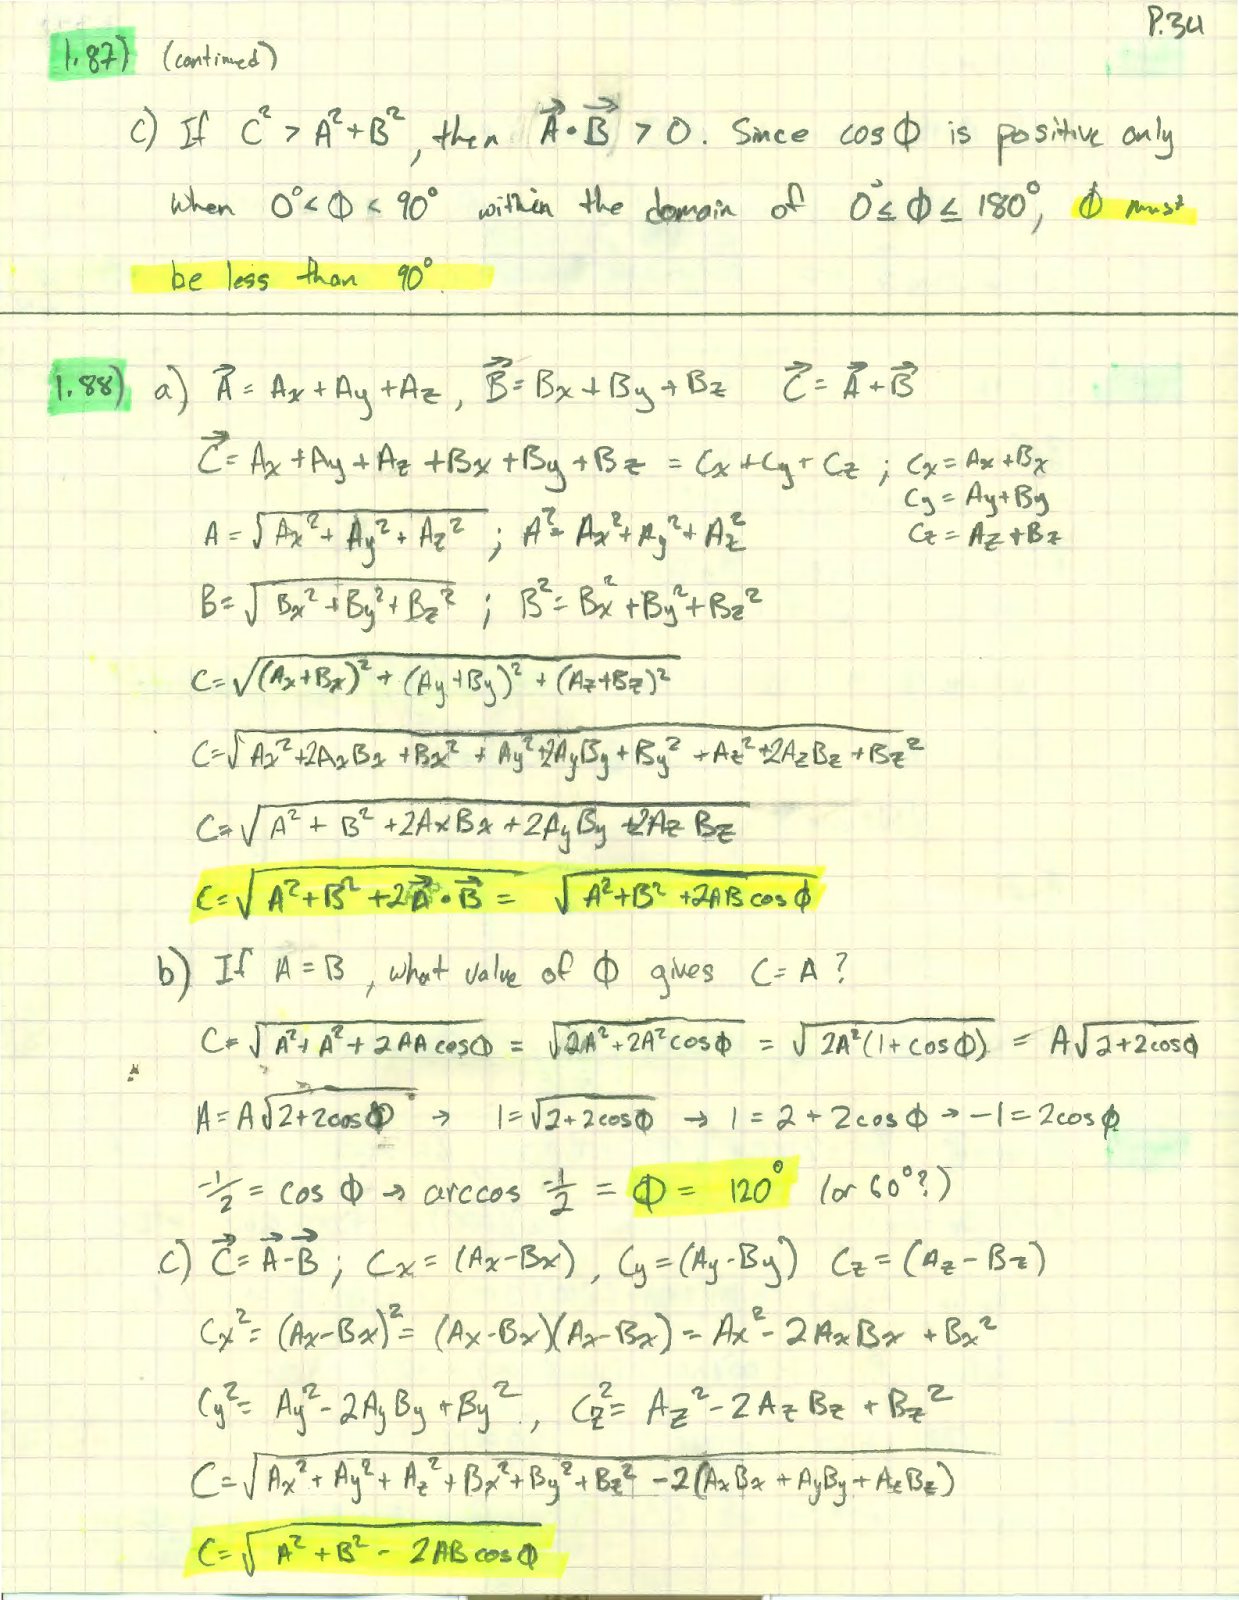 P.34
1.87) (continued)
c) If C² > A² + B², then A⃗ • B⃗ > 0. Since cos ϕ is positive only
when 0° < ϕ < 90° within the domain of 0° ≤ ϕ ≤ 180°, ϕ must
be less than 90°
1.88) a) A⃗ = Ax + Ay + Az, B⃗ = Bx + By + Bz C⃗ = A⃗ + B⃗
C⃗ = Ax + Ay + Az + Bx + By + Bz = Cx + Cy + Cz ; Cx = Ax + Bx
Cy = Ay + By
A = √(Ax² + Ay² + Az²) ; A² = Ax² + Ay² + Az² Cz = Az + Bz
B = √(Bx² + By² + Bz²) ; B² = Bx² + By² + Bz²
C = √((Ax+Bx)² + (Ay+By)² + (Az+Bz)²)
C = √(Ax² + 2AxBx + Bx² + Ay² + 2AyBy + By² + Az² + 2AzBz + Bz²)
C = √(A² + B² + 2AxBx + 2AyBy + 2AzBz)
C = √(A² + B² + 2A⃗ • B⃗) = √(A² + B² + 2AB cos ϕ)
b) If A = B, what value of ϕ gives C = A?
C = √(A² + A² + 2AA cos ϕ) = √(2A² + 2A² cos ϕ) = √(2A²(1 + cos ϕ)) = A√(2 + 2cos ϕ)
A = A√(2 + 2cos ϕ) → 1 = √(2 + 2cos ϕ) → 1 = 2 + 2cos ϕ → -1 = 2cos ϕ
-1/2 = cos ϕ → arccos -1/2 = ϕ = 120° (or 60°?)
c) C⃗ = A⃗ - B⃗ ; Cx = (Ax - Bx), Cy = (Ay - By) Cz = (Az - Bz)
Cx² = (Ax - Bx)² = (Ax - Bx)(Ax - Bx) = Ax² - 2AxBx + Bx²
Cy² = Ay² - 2AyBy + By², Cz² = Az² - 2AzBz + Bz²
C = √(Ax² + Ay² + Az² + Bx² + By² + Bz² - 2(AxBx + AyBy + AzBz))
C = √(A² + B² - 2AB cos ϕ)